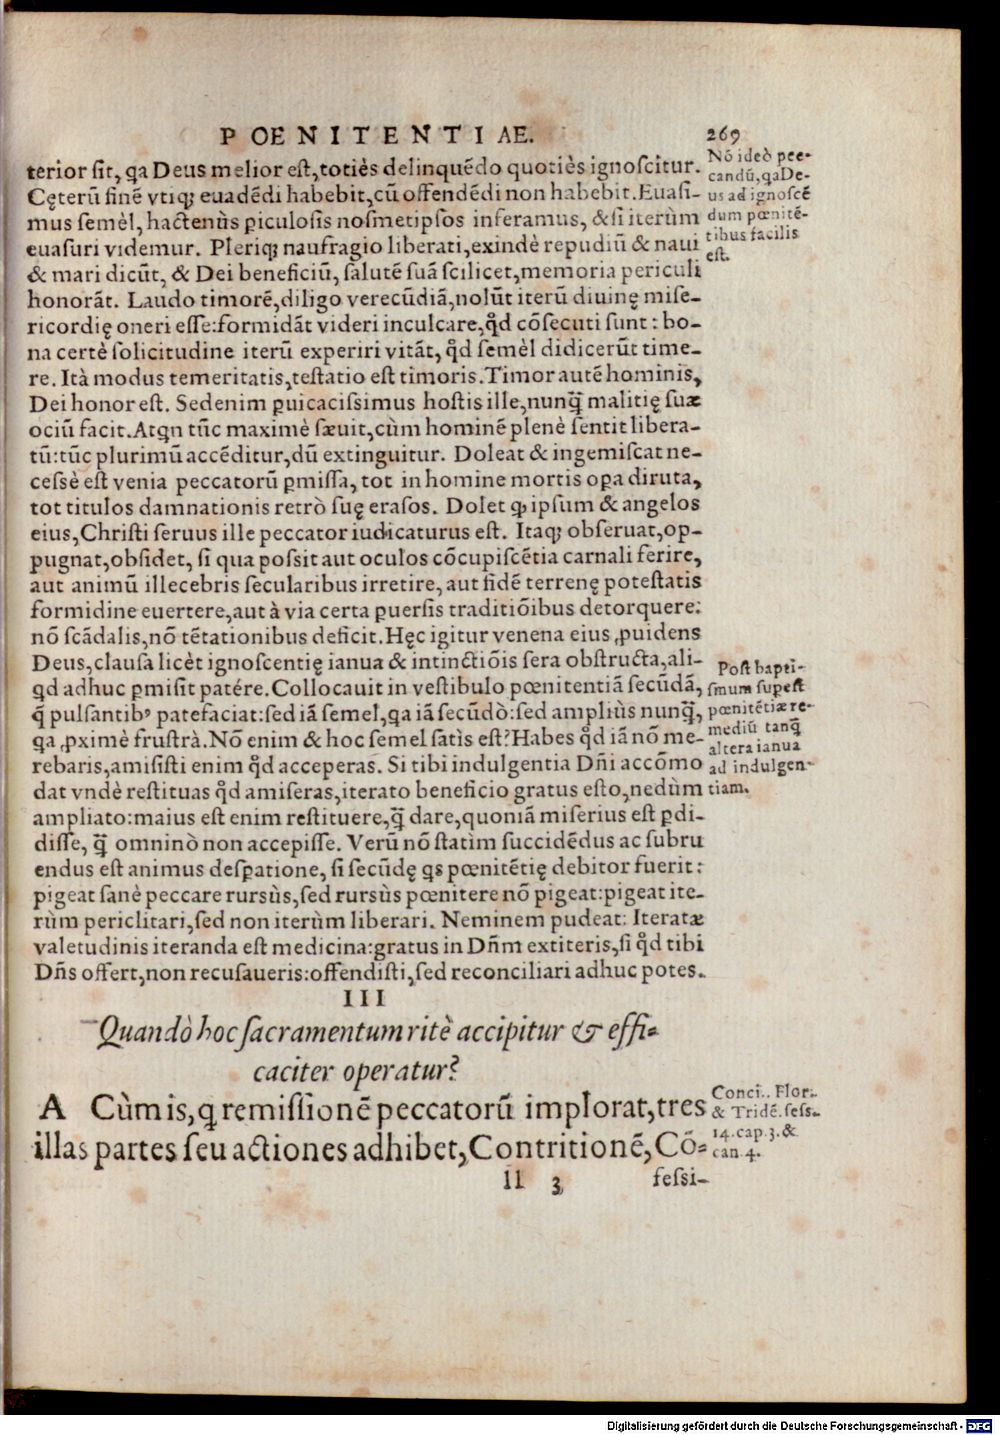 POENITENTIAE.
269
terior sit, qa Deus melior est, totiès delinquēdo quotiès ignoscitur.
Cęterū finē vtiq; euadēdi habebit, cū offendēdi non habebit. Euasi-
mus semèl, hactenùs piculosis nosmetipsos inferamus, & si iterùm
euasuri videmur. Pleriq; naufragio liberati, exindè repudiū & naui
& mari dicūt, & Dei beneficiū, salutē suā scilicet, memoria periculi
honorāt. Laudo timorē, diligo verecūdiā, nolūt iterū diuinę mise-
ricordię oneri esse: formidāt videri inculcare, qd cōsecuti sunt: bo-
na certè solicitudine iterū experiri vitāt, qd semèl didicerūt time-
re. Ità modus temeritatis, testatio est timoris. Timor autē hominis,
Dei honor est. Sedenim puicacissimus hostis ille, nunq̄ malitię suæ
ociū facit. Atqn tūc maximè sæuit, cùm hominē plenè sentit libera-
tū: tūc plurimū accēditur, dū extinguitur. Doleat & ingemiscat ne-
cessè est venia peccatorū pmissa, tot in homine mortis opa diruta,
tot titulos damnationis retrò suę erasos. Dolet q ipsum & angelos
eius, Christi seruus ille peccator iudicaturus est. Itaq; obseruat, op-
pugnat, obsidet, si qua possit aut oculos cōcupiscētia carnali ferire,
aut animū illecebris secularibus irretire, aut fidē terrenę potestatis
formidine euertere, aut à via certa puersis traditiōibus detorquere:
nō scādalis, nō tētationibus deficit. Hęc igitur venena eius puidens
Deus, clausa licèt ignoscentię ianua & intinctiōis sera obstructa, ali-
qd adhuc pmisit patére. Collocauit in vestibulo pœnitentiā secūdā,
q̄ pulsantibꝰ patefaciat: sed iā semel, qa iā secūdò: sed ampliùs nunq̄,
qa pximè frustrà. Nō enim & hoc semel satìs est? Habes qd iā nō me-
rebaris, amisisti enim qd acceperas. Si tibi indulgentia Dñi accōmo
dat vndè restituas qd amiseras, iterato beneficio gratus esto, nedùm
ampliato: maius est enim restituere, q̄ dare, quoniā miserius est pdi-
disse, q̄ omninò non accepisse. Verū nō statìm succidēdus ac subru
endus est animus despatione, si secūdę qs pœnitētię debitor fuerit:
pigeat sanè peccare rursùs, sed rursùs pœnitere nō pigeat: pigeat ite-
rùm periclitari, sed non iterùm liberari. Neminem pudeat: Iteratæ
valetudinis iteranda est medicina: gratus in Dñm extiteris, si qd tibi
Dñs offert, non recusaueris: offendisti, sed reconciliari adhuc potes.
Nō ideò pec-
candū, qa De-
us ad ignoscē
dum pœnitē-
tibus facilis
est.
Post bapti-
smum supest
pœnitētiæ re-
mediū tanq̄
altera ianua
ad indulgen-
tiam.
III
Quandò hoc sacramentum ritè accipitur & effi-
caciter operatur?
A Cùm is, q remissionē peccatorū implorat, tres
illas partes seu actiones adhibet, Contritionē, Cō-
Conci. Flor.
& Tridē. sess.
14. cap. 3. &
can. 4.
ll 3
fessi-
Digitalisierung gefördert durch die Deutsche Forschungsgemeinschaft - DFG